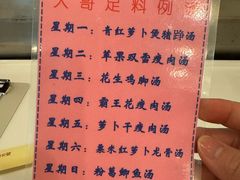 大哥足料例汤
星期一：青红萝卜煲猪踭汤
星期二：苹果双雪瘦肉汤
星期三：花生鸡脚汤
星期四：霸王花瘦肉汤
星期五：萝卜干瘦肉汤
星期六：粟米红萝卜龙骨汤
星期日：粉葛鲫鱼汤